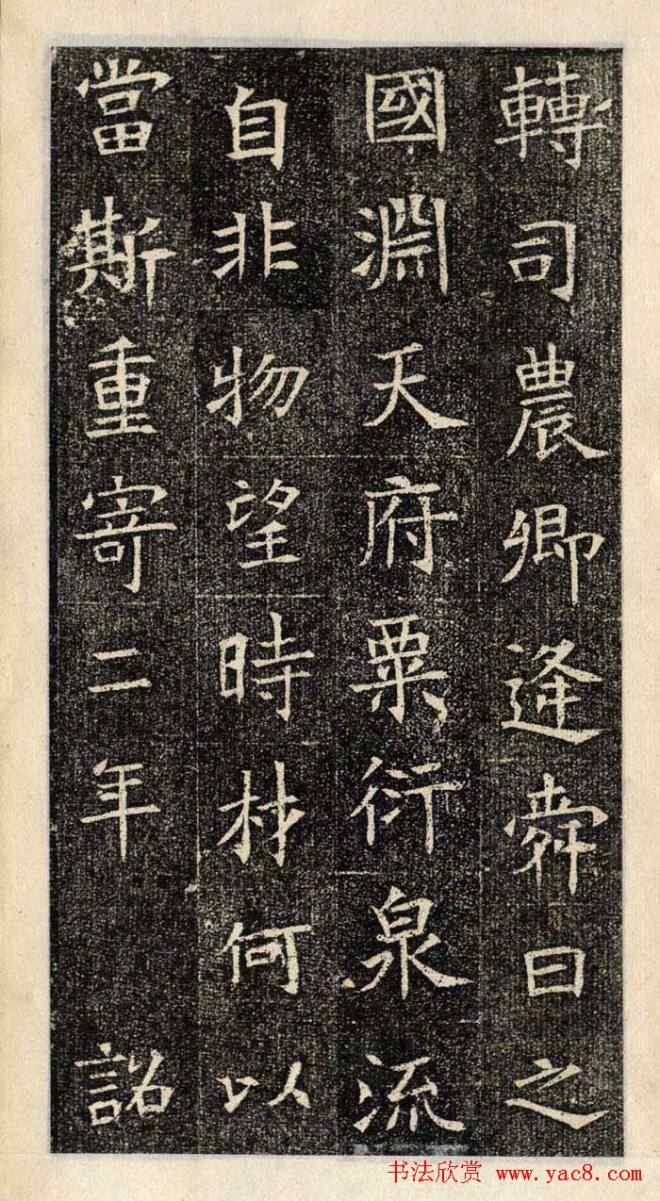 轉司農卿逢舜曰之
國淵天府粟衍泉流
自非物望時材何以
當斯重寄二年 詔
书法欣赏 www.yac8.com